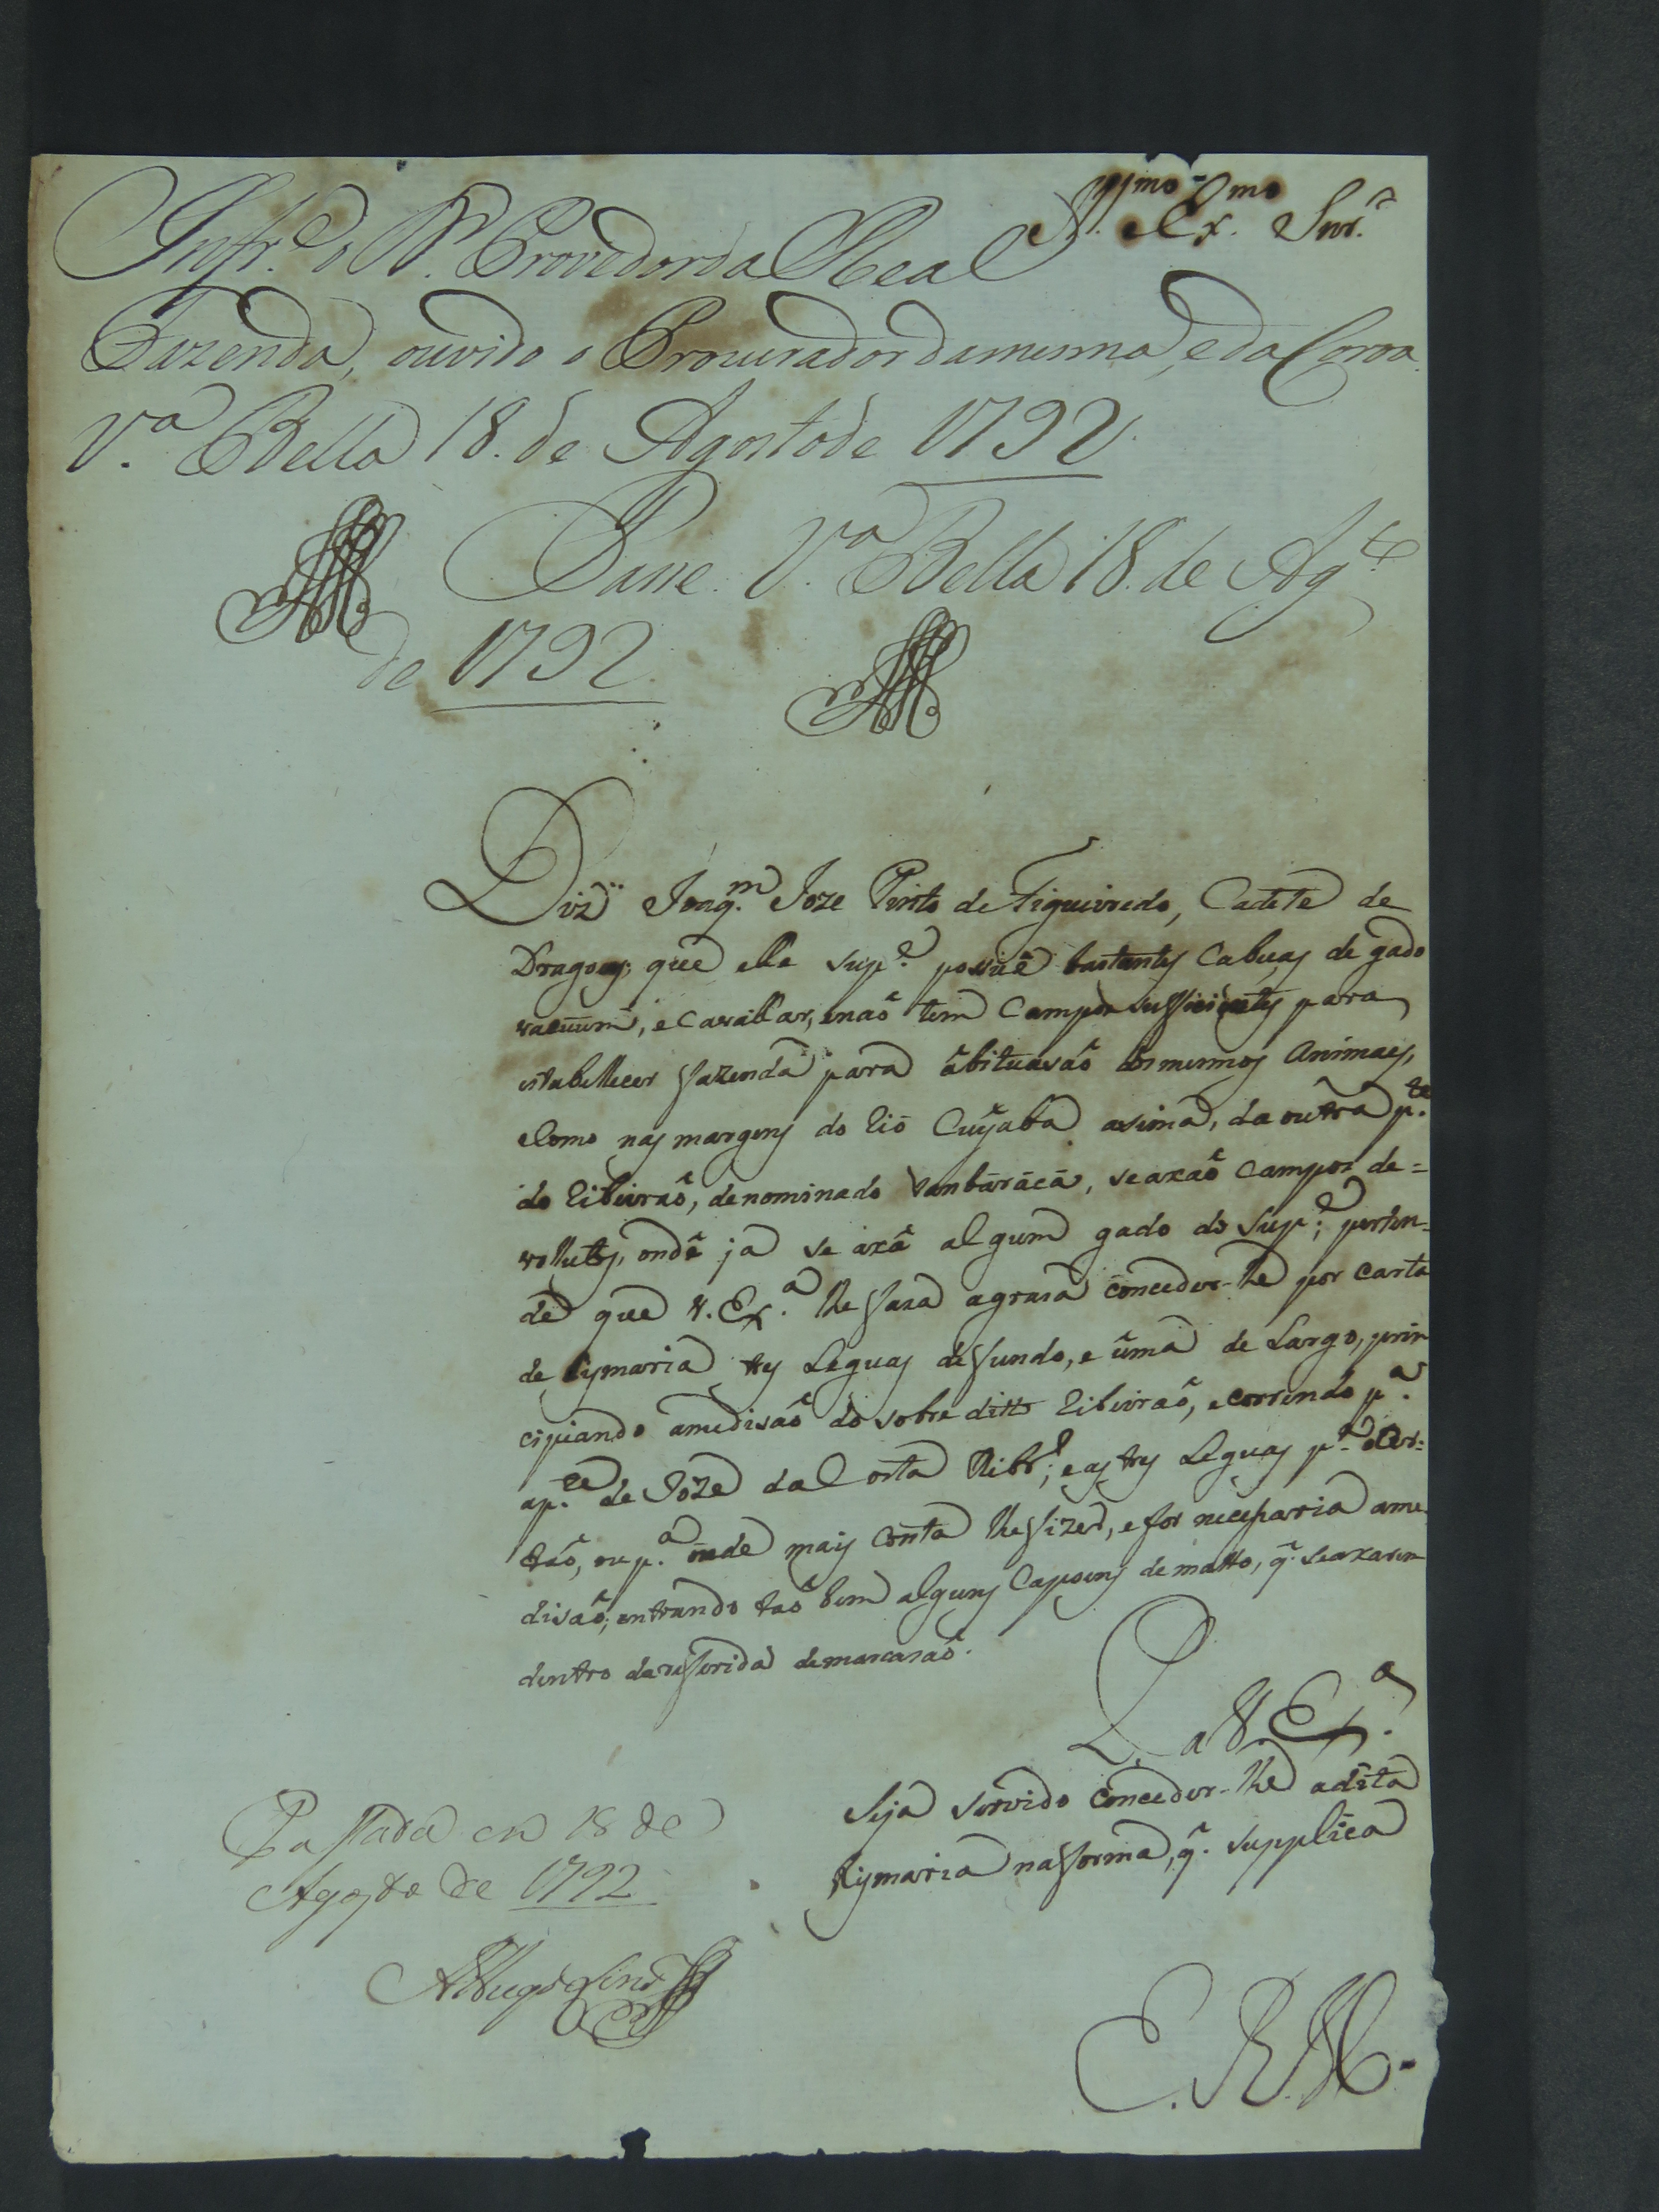 Jll.mo Ex.mo Snr.
Infr.e o D.r Provedor da Real
Fazenda, ouvido o Procurador da mesma, e da Coroa.
V.a Bella 18. de Agosto de 1792
Passe. V.a Bella 18. de Ag.to
de 1792.
Diz Joaq.m Joze Pinto de Figueiredo, Cadete de
Dragoẽs; que elle sup.e possuê bastantes Cabeças de gado
vacuum, e Cavallar, e naõ tem Campos sufficientes para
estabellecer fazenda para âbituasaõ dos mesmos Animaes,
e Como nas margens do Rio Cuyaba asima, da outra p.te
do Ribeiraõ, denominado , se axaõ Campos de=
vollutos, onde ja se axâ algum gado do Sup.e; perten-
de que V. Ex.a lhe fasa a grasa conceder-lhe por Carta
de Sysmaria tres Leguas de fundo, e uma de Largo, prin
cipiando a medisaõ do sobre ditto Ribeiraõ, e correndo p.a
a p.te de Joze da Costa Ribr.o; e as tres Leguas p.a o Cer=
taõ, ou p.a onde mais Conta lhe fizer, e for necessaria a me
disaõ; entrando taõ bem alguns Capoens de matto, q̃ se axarem
dentro da referida demarcasaõ.
P. a V. Ex.a
Seja servido conceder-lhe a dita
Sysmaria na forma, q̃ supplica
Passada em 18 de
Agosto de 1792
E. R. M.